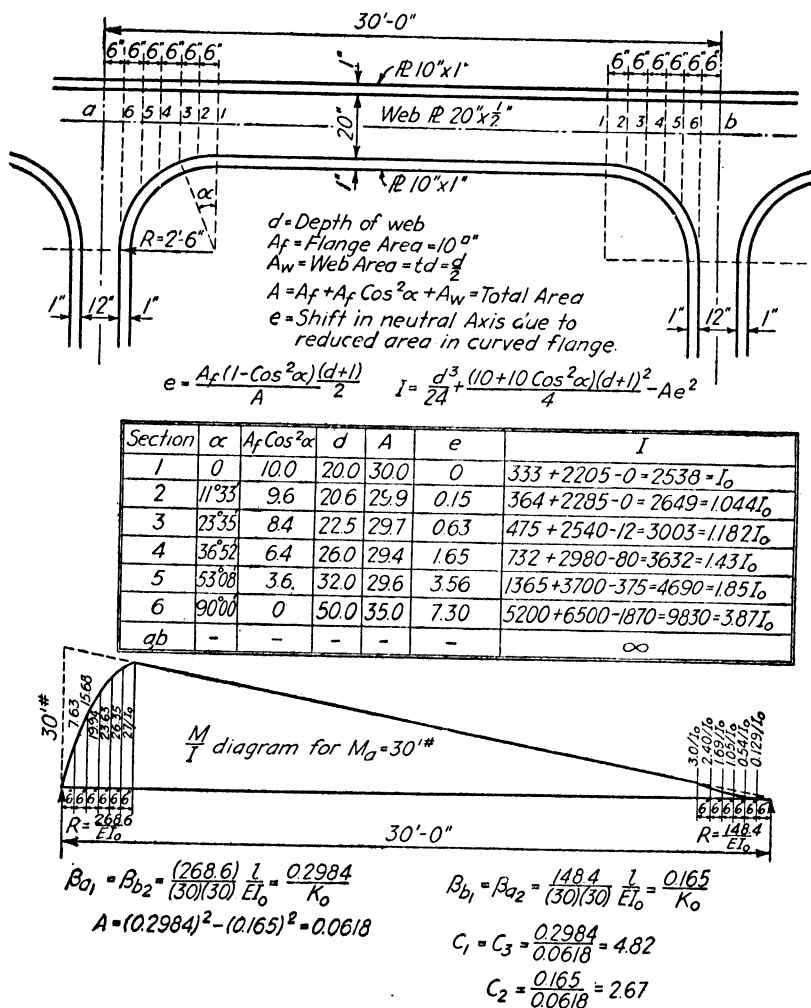 30'-0"
6" 6" 6" 6" 6" 6" 6" 6" 6" 6" 6" 6"
1" ℞ 10"x1"
a 6 5 4 3 2 1 20" Web ℞ 20"x½" 1 2 3 4 5 6 b
1" ℞ 10"x1"
α
R=2'-6"
d=Depth of web
A_f=Flange Area=10□"
A_w=Web Area=td=d/2
A=A_f+A_f Cos²α+A_w=Total Area
e=Shift in neutral Axis due to
reduced area in curved flange.
1" 12" 1" 1" 12" 1"
e=A_f(1-Cos²α)/A (d+1)/2 I=d³/24+(10+10Cos²α)(d+1)²/4-Ae²
Section α A_fCos²α d A e I
1 0 10.0 20.0 30.0 0 333+2205-0=2538=I₀
2 11°33' 9.6 20.6 29.9 0.15 364+2285-0=2649=1.044I₀
3 23°35' 8.4 22.5 29.7 0.63 475+2540-12=3003=1.182I₀
4 36°52' 6.4 26.0 29.4 1.65 732+2980-80=3632=1.43I₀
5 53°08' 3.6 32.0 29.6 3.56 1365+3700-375=4690=1.85I₀
6 90°00' 0 50.0 35.0 7.30 5200+6500-1870=9830=3.87I₀
ab - - - - - ∞
30'# 7.63 15.68 19.94 23.63 26.35 27/I₀
M/I diagram for M_a=30'#
3.0/I₀ 2.40/I₀ 1.69/I₀ 1.05/I₀ 0.54/I₀ 0.129/I₀
6" 6" 6" 6" 6" 6" 6" 6" 6" 6" 6" 6"
R=268.6/EI₀ 30'-0" R=148.4/EI₀
β_a₁=β_b₂=(268.6)/(30)(30) l/EI₀=0.2984/K₀
β_b₁=β_a₂=148.4/(30)(30) l/EI₀=0.165/K₀
A=(0.2984)²-(0.165)²=0.0618
C₁=C₃=0.2984/0.0618=4.82
C₂=0.165/0.0618=2.67